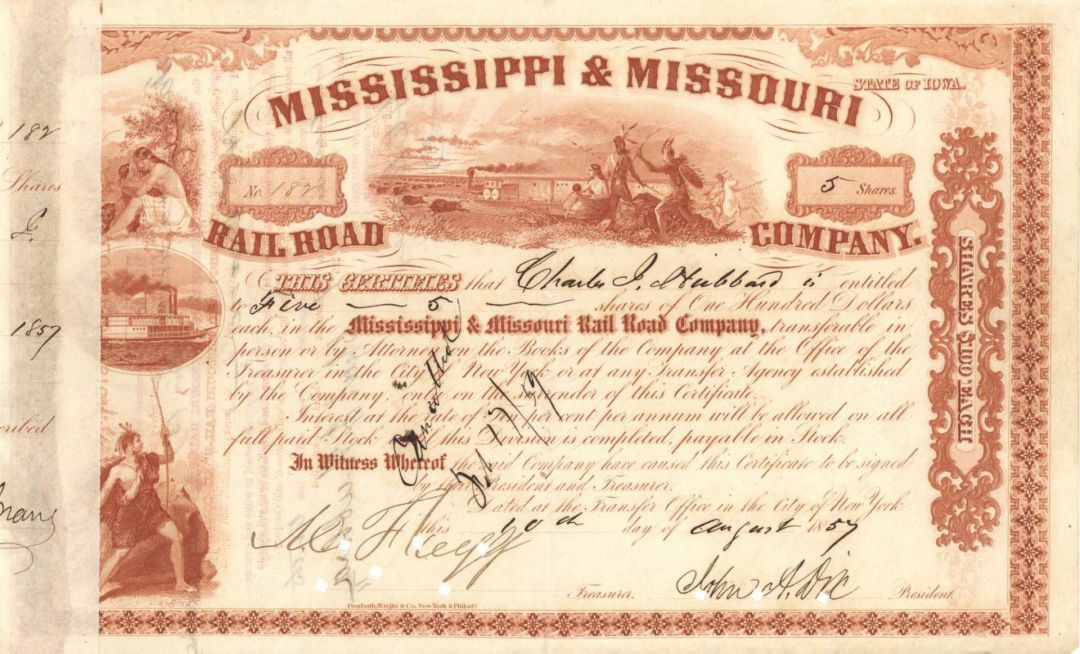 MISSISSIPPI & MISSOURI
STATE OF IOWA.
No. 182
5 Shares.
RAIL ROAD
COMPANY.
THIS CERTIFIES that Charles J. Hubbard is entitled
to Five 5 shares of One Hundred Dollars
each, in the Mississippi & Missouri Rail Road Company, transferable in
person or by Attorney on the Books of the Company at the Office of the
Treasurer in the City of New York or at any Transfer Agency established
by the Company, only on the surrender of this Certificate.
Interest at the Rate of per cent per annum will be allowed on all
full paid Stock this Division is completed, payable in Stock.
In Witness Whereof the said Company have caused this Certificate to be signed
by their President and Treasurer.
Dated at the Transfer Office in the City of New York
this 10th day of August 1857
John A. Dix
Treasurer.
President.
Danforth, Wright & Co. New York & Philada.
SHARES $100 EACH
Cancelled
182
Shares
J.
1857